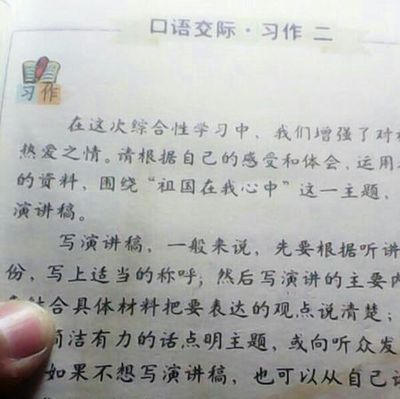 口语交际·习作 二
习作
在这次综合性学习中，我们增强了对
热爱之情。请根据自己的感受和体会、运用
的资料，围绕“祖国在我心中”这一主题，
演讲稿。
写演讲稿，一般来说，先要根据听讲
份，写上适当的称呼；然后写演讲的主要内
结合具体材料把要表达的观点说清楚；
简洁有力的话点明主题，或向听众发
如果不想写演讲稿，也可以从自己